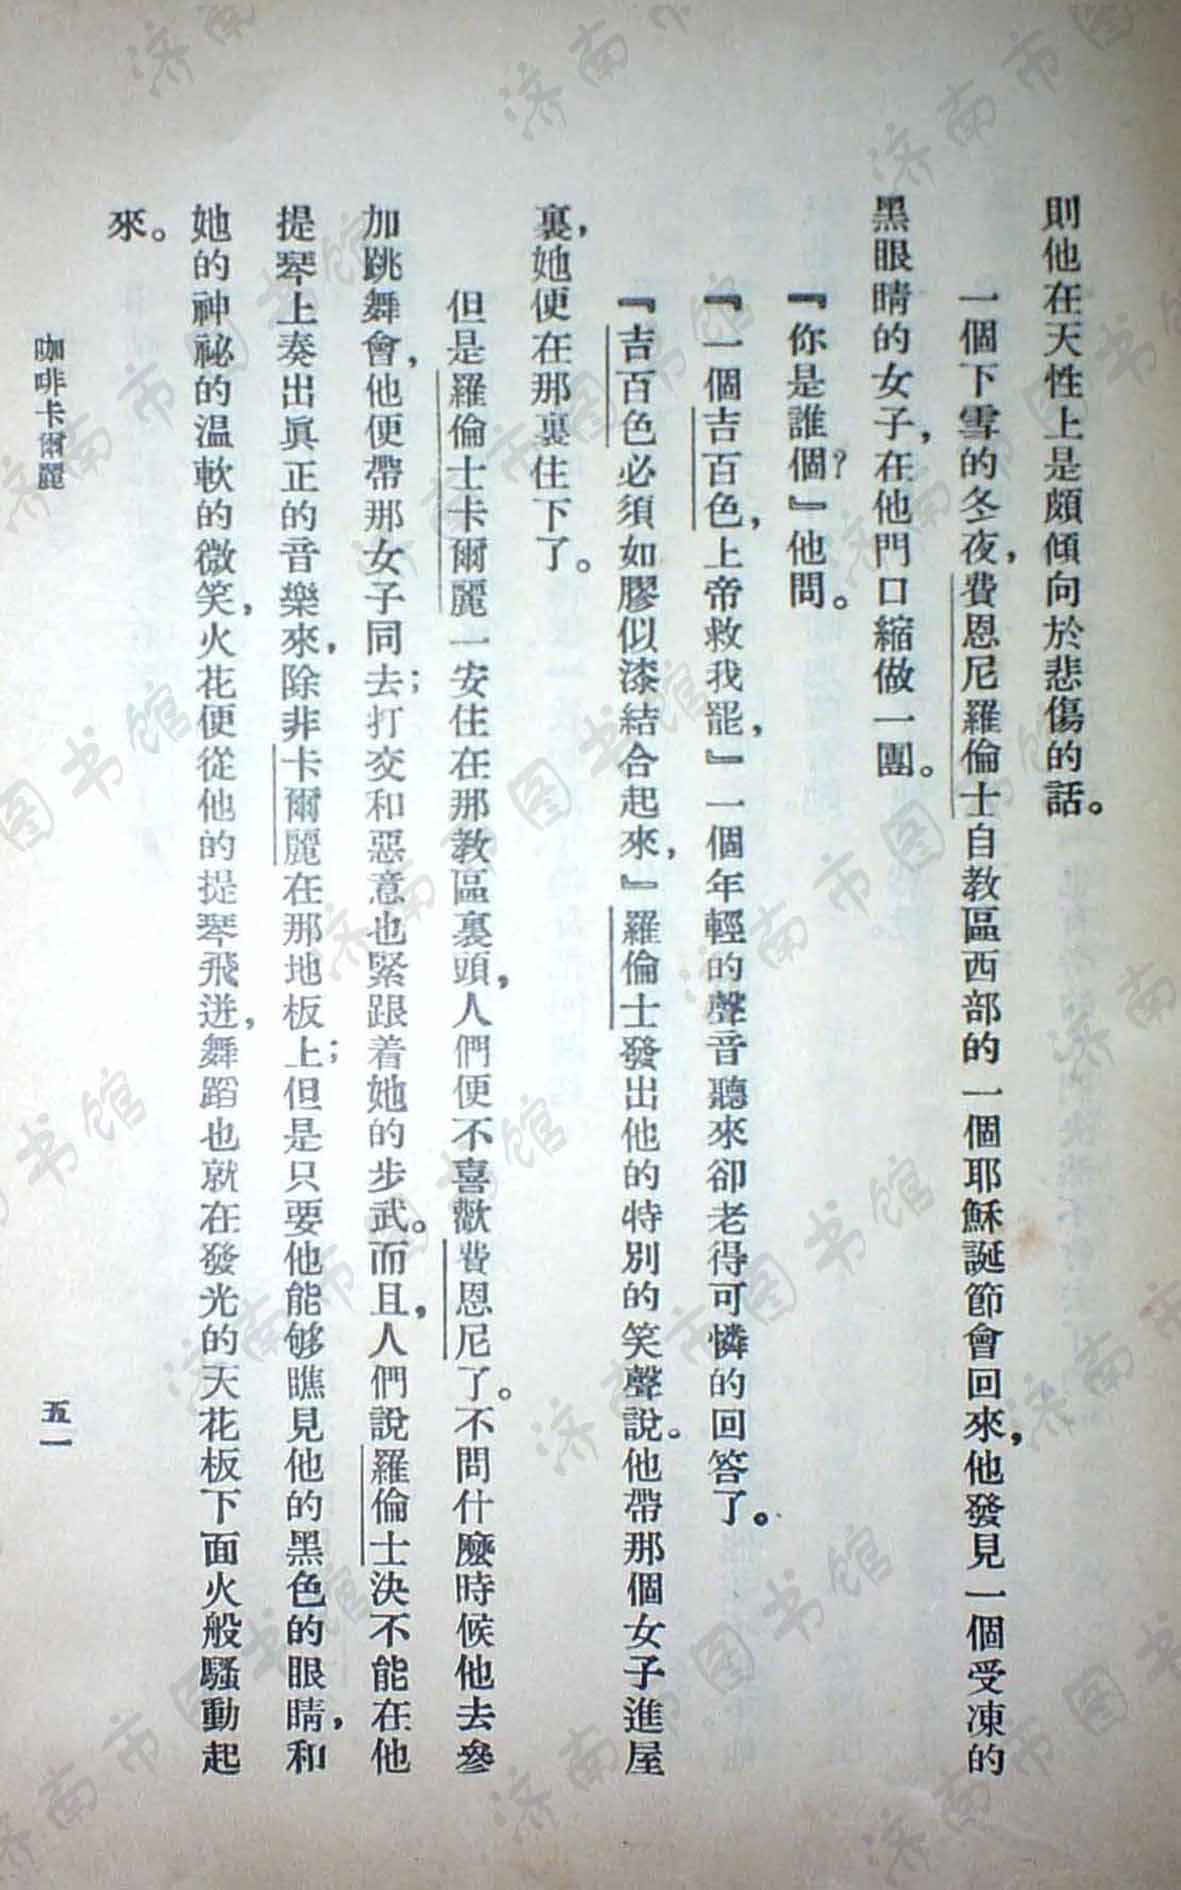 則他在天性上是頗傾向於悲傷的話。
一個下雪的冬夜，費恩尼羅倫士自教區西部的一個耶穌誕節會回來，他發見一個受凍的
黑眼睛的女子，在他門口縮做一團。
『你是誰個？』他問。
『一個吉百色，上帝救我罷，』一個年輕的聲音聽來卻老得可憐的回答了。
『吉百色必須如膠似漆結合起來，』羅倫士發出他的特別的笑聲說。他帶那個女子進屋
裏，她便在那裏住下了。
但是羅倫士卡爾麗一安住在那教區裏頭，人們便不喜歡費恩尼了。不問什麼時候他去參
加跳舞會，他便帶那女子同去；打交和惡意也緊跟着她的步武。而且，人們說羅倫士決不能在他
提琴上奏出眞正的音樂來，除非卡爾麗在那地板上；但是只要他能够瞧見他的黑色的眼睛，和
她的神祕的温軟的微笑，火花便從他的提琴飛迸，舞蹈也就在發光的天花板下面火般騷動起
來。
咖啡卡爾麗
五一
济南市图书馆